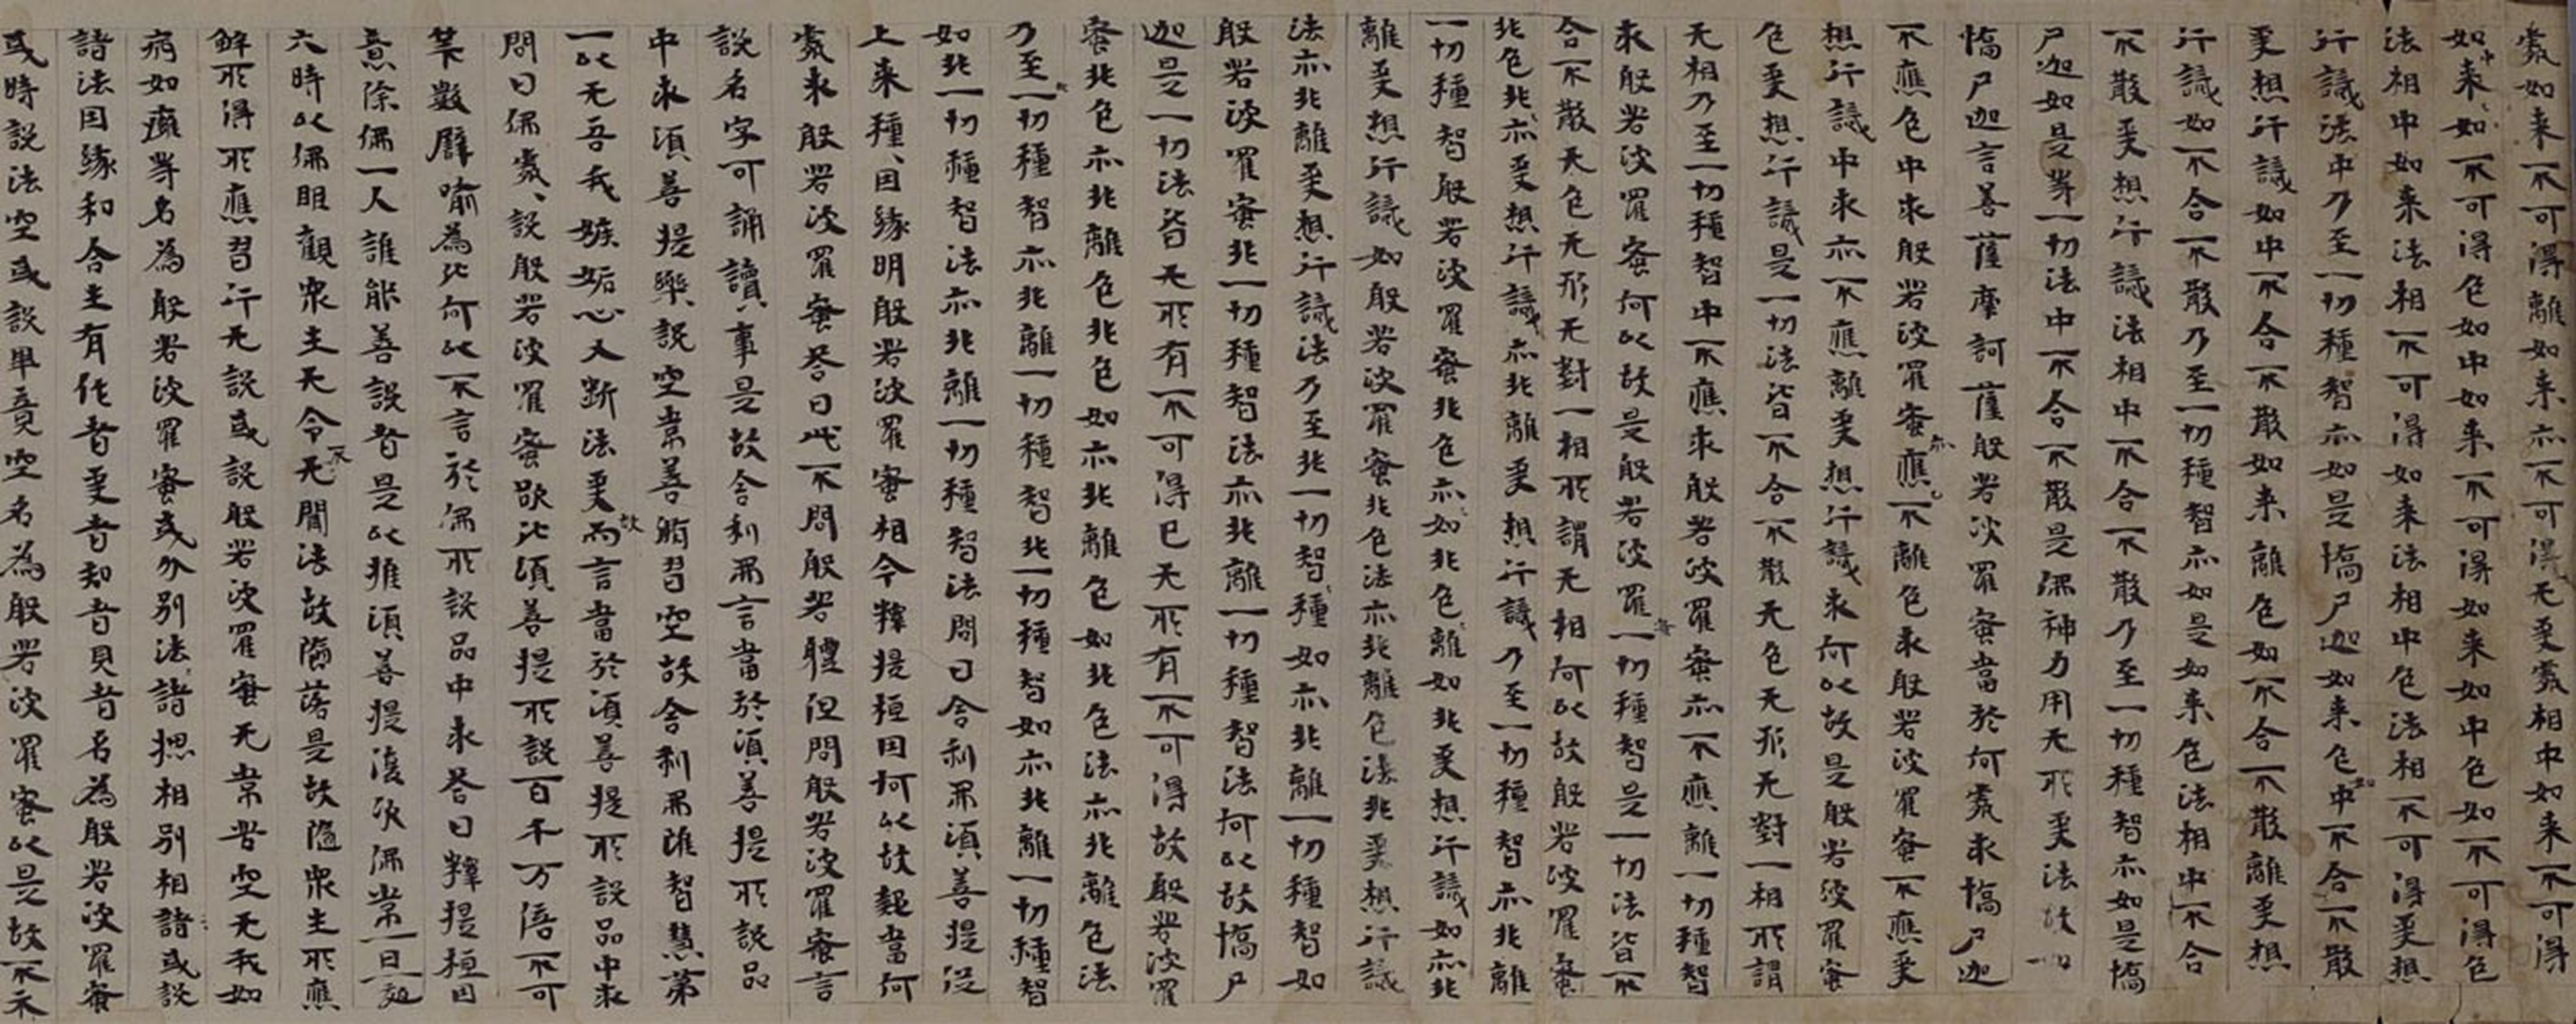 處如来不可得離如来亦不可得无受處相中如来不可得
如中来如不可得色如中如来不可得如来如中色如不可得色
法相中如来法相不可得如来法相中色法相不可得受想
行識法中乃至一切種智亦如是憍尸迦如来色如中不合不散
受想行識如中不合不散如来離色如不合不散離受想
行識如不合不散乃至一切種智亦如是如来色法相中不合
不散受想行識法相中不合不散乃至一切種智亦如是憍
尸迦如是等一切法中不合不散是佛神力用无所受法故如
憍尸迦言菩薩摩訶薩般若波羅蜜當於何處求憍尸迦
不應色中求般若波羅蜜亦應不離色求般若波羅蜜不應受
想行識中求亦不應離受想行識求何以故是般若波羅蜜
色受想行識是一切法皆不合不散无色无形无對一相所謂
无相乃至一切種智中不應求般若波羅蜜亦不應離一切種智
求般若波羅蜜何以故是般若波羅蜜一切種智是一切法皆不
合不散无色无形无對一相所謂无相何以故般若波羅蜜
非色非亦受想行識亦非離受想行識乃至一切種智亦非離
一切種智般若波羅蜜非色亦如非色離如非受想行識如亦非
離受想行識如般若波羅蜜非色法亦非離色法非受想行識
法亦非離受想行識法乃至非一切智種如亦非離一切種智如
般若波羅蜜非一切種智法亦非離一切種智法何以故憍尸
迦是一切法皆无所有不可得已无所有不可得故般若波羅
蜜非色亦非離色非色如亦非離色如非色法亦非離色法
乃至非一切種智亦非離一切種智非一切種智如亦非離一切種智
如非一切種智法亦非離一切種智法問曰舍利弗須菩提從
上来種種因緣明般若波羅蜜相今釋提桓因何以故難當何
處求般若波羅蜜答曰此不問般若體但問般若波羅蜜言
說名字可誦讀事是故舍利弗言當於須菩提所說品
中求須菩提樂說空常善脩習空故舍利弗雖智慧第
一以无吾我嫉妬心又斷法愛故而言當於須菩提所說品中求
問曰佛處處說般若波羅蜜欲比須菩提所說百千万倍不可
筭數譬喻為比何以不言於佛所說品中求答曰釋提桓因
意除佛一人誰能善說者是以推須菩提復次佛常一日一夜
六時以佛眼觀衆生无令不聞法故墮落是故隨衆生所應
解所得所應習行无說或說般若波羅蜜无常苦空无我如
病如癰等名為般若波羅蜜或分別諸法揔相別相諸或說
諸法因緣和合生有作者受者知者見者名為般若波羅蜜
或時說法空或說畢竟空名為般若波羅蜜以是故不示